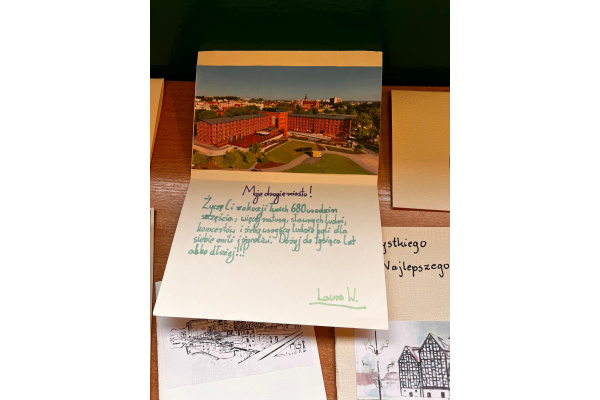 Moje drogie miasto!
Życzę Ci z okazji Twoich 680 urodzin
szczęścia, więcej natury, sławnych ludzi,
koncertów i żeby wszyscy ludzie byli dla
siebie mili i zgodni. Dożyj do tysiąca lat
albo dłużej!!!
Laura W.
ystkiego
Najlepszego